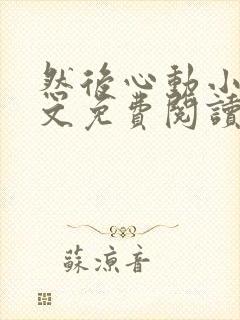 然後心動小
文免費閱讀
蘇涼音